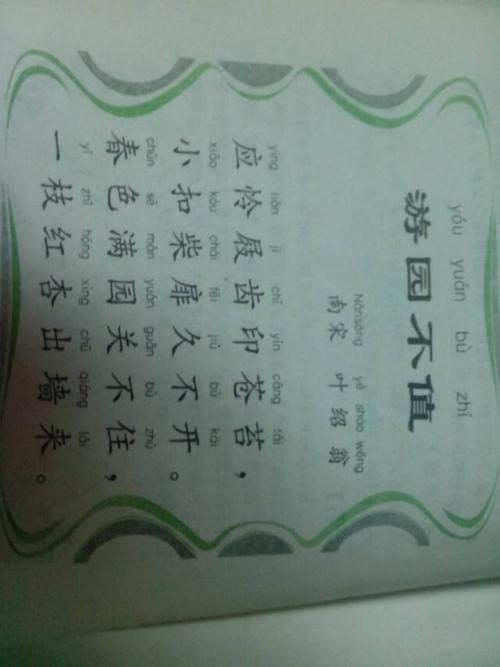 yóu yuán bù zhí
游园不值
Nánsòng yè shào wēng
南宋 叶绍翁
yīng lián jī chǐ yìn cāng tái
应怜屐齿印苍苔，
xiǎo kòu chái fēi jiǔ bù kāi
小扣柴扉久不开。
chūn sè mǎn yuán guān bú zhù
春色满园关不住，
yì zhī hóng xìng chū qiáng lái
一枝红杏出墙来。